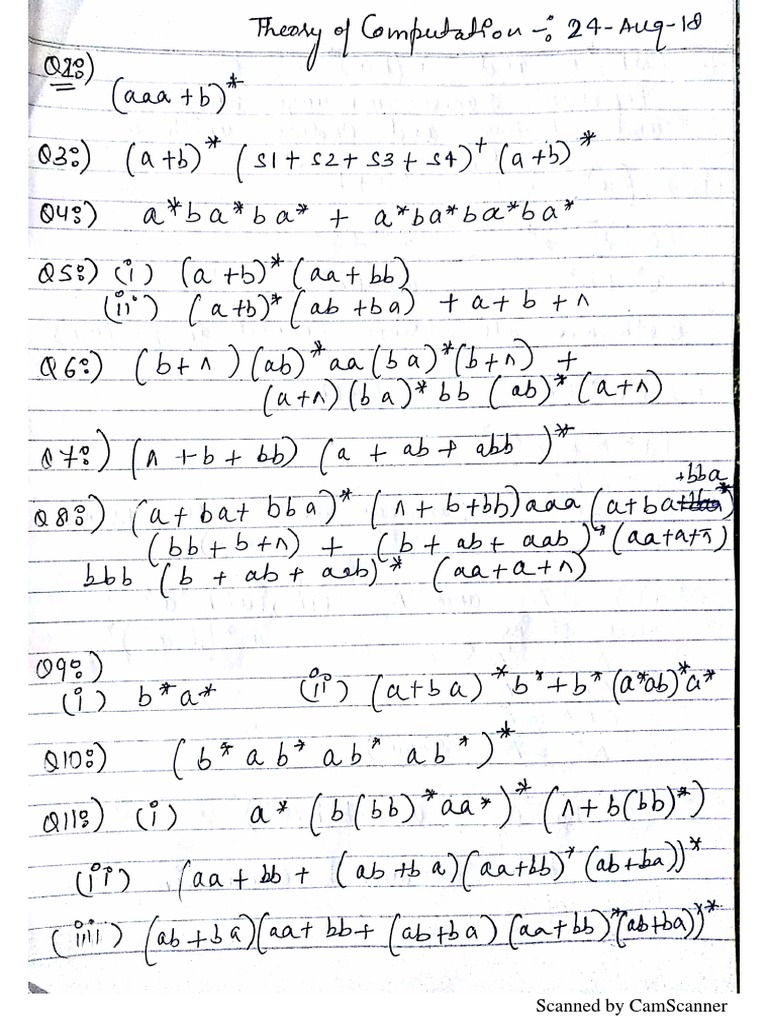 Theory of Computation :- 24-Aug-18
Q1:)
(aaa + b)*
Q3:) (a+b)* (S1 + S2 + S3 + S4)+ (a+b)*
Q4:) a*ba*ba* + a*ba*ba*ba*
Q5:) (i) (a+b)*(aa+bb)
(ii) (a+b)*(ab+ba) + a+b+^
Q6:) (b+^)(ab)*aa(ba)*(b+^) +
(a+^)(ba)*bb(ab)*(a+^)
Q7:) (^+b+bb)(a+ab+abb)*
+bba
Q8:) (a+ba+bba)*(^+b+bb)aaa(a+ba)*
(bb+b+^) + (b+ab+aab)*(aa+a+^)
bbb (b+ab+aab)* (aa+a+^)
Q9:)
(i) b*a* (ii) (a+ba)*b*+b*(a*ab)*a*
Q10:) (b*ab*ab*ab*)*
Q11:) (i) a*(b(bb)*aa*)*(^+b(bb)*)
(ii) (aa+bb+(ab+ba)(aa+bb)*(ab+ba))*
(iii) (ab+ba)(aa+bb+(ab+ba)(aa+bb)*(ab+ba))**
Scanned by CamScanner